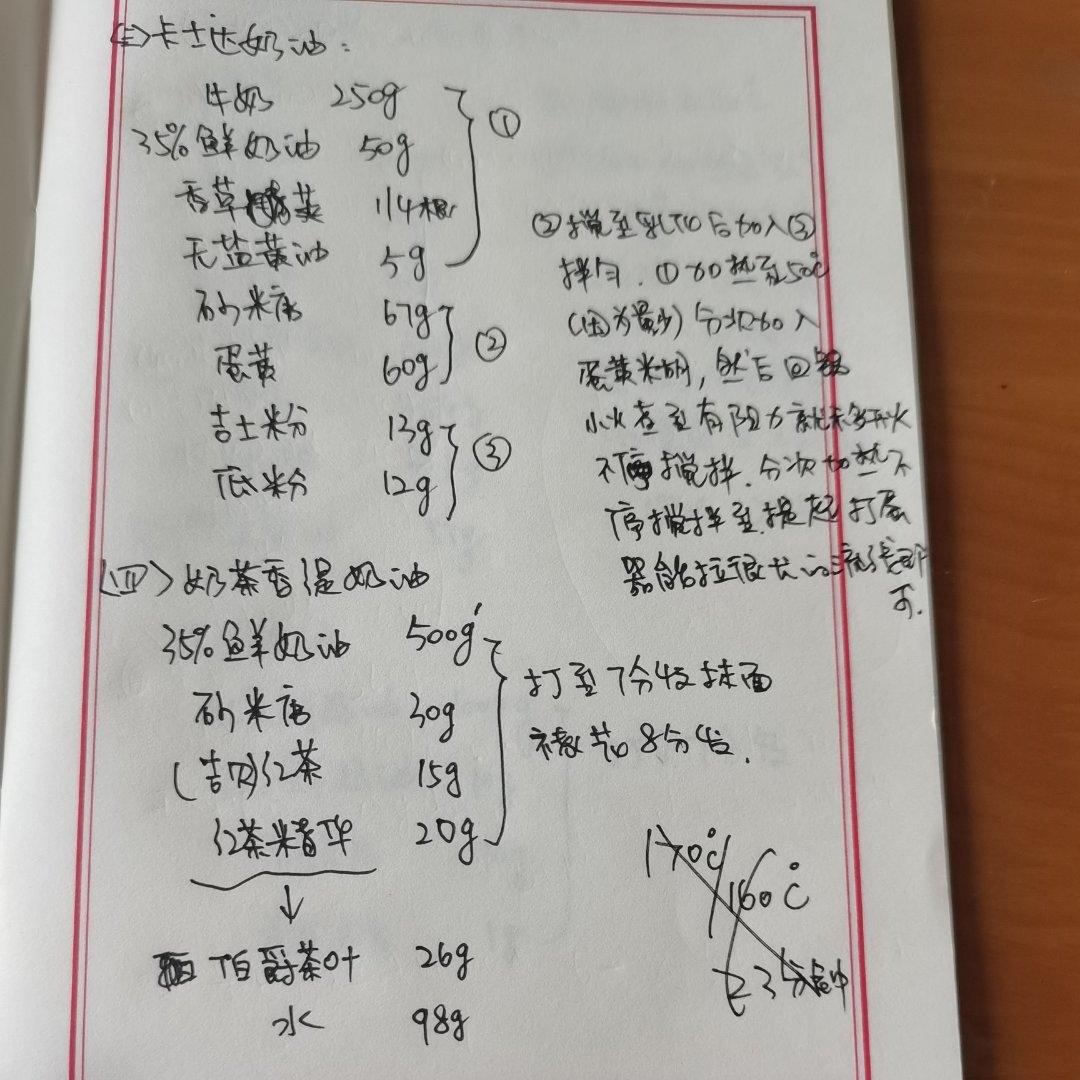 (三)卡士达奶油：
牛奶 250g
35%鲜奶油 50g
香草荚 1/4根
无盐黄油 5g
①
砂米唐 67g
蛋黄 60g
②
吉士粉 13g
低粉 12g
③
②搅至乳化后加入③
拌匀．①加热至50℃
(因为量少)分次加入
蛋黄米胡，然后回锅
小火煮至有阻力就离火
不停搅拌．分次加热不
停搅拌至提起打蛋
器能拉很长的流
可．
(四)奶茶香缇奶油
35%鲜奶油 500g
砂米唐 30g
(吉贝)红茶 15g
红茶精华 20g
打至7分发抹面
裱花8分发．
↓
伯爵茶叶 26g
水 98g
170℃/160℃
23分钟